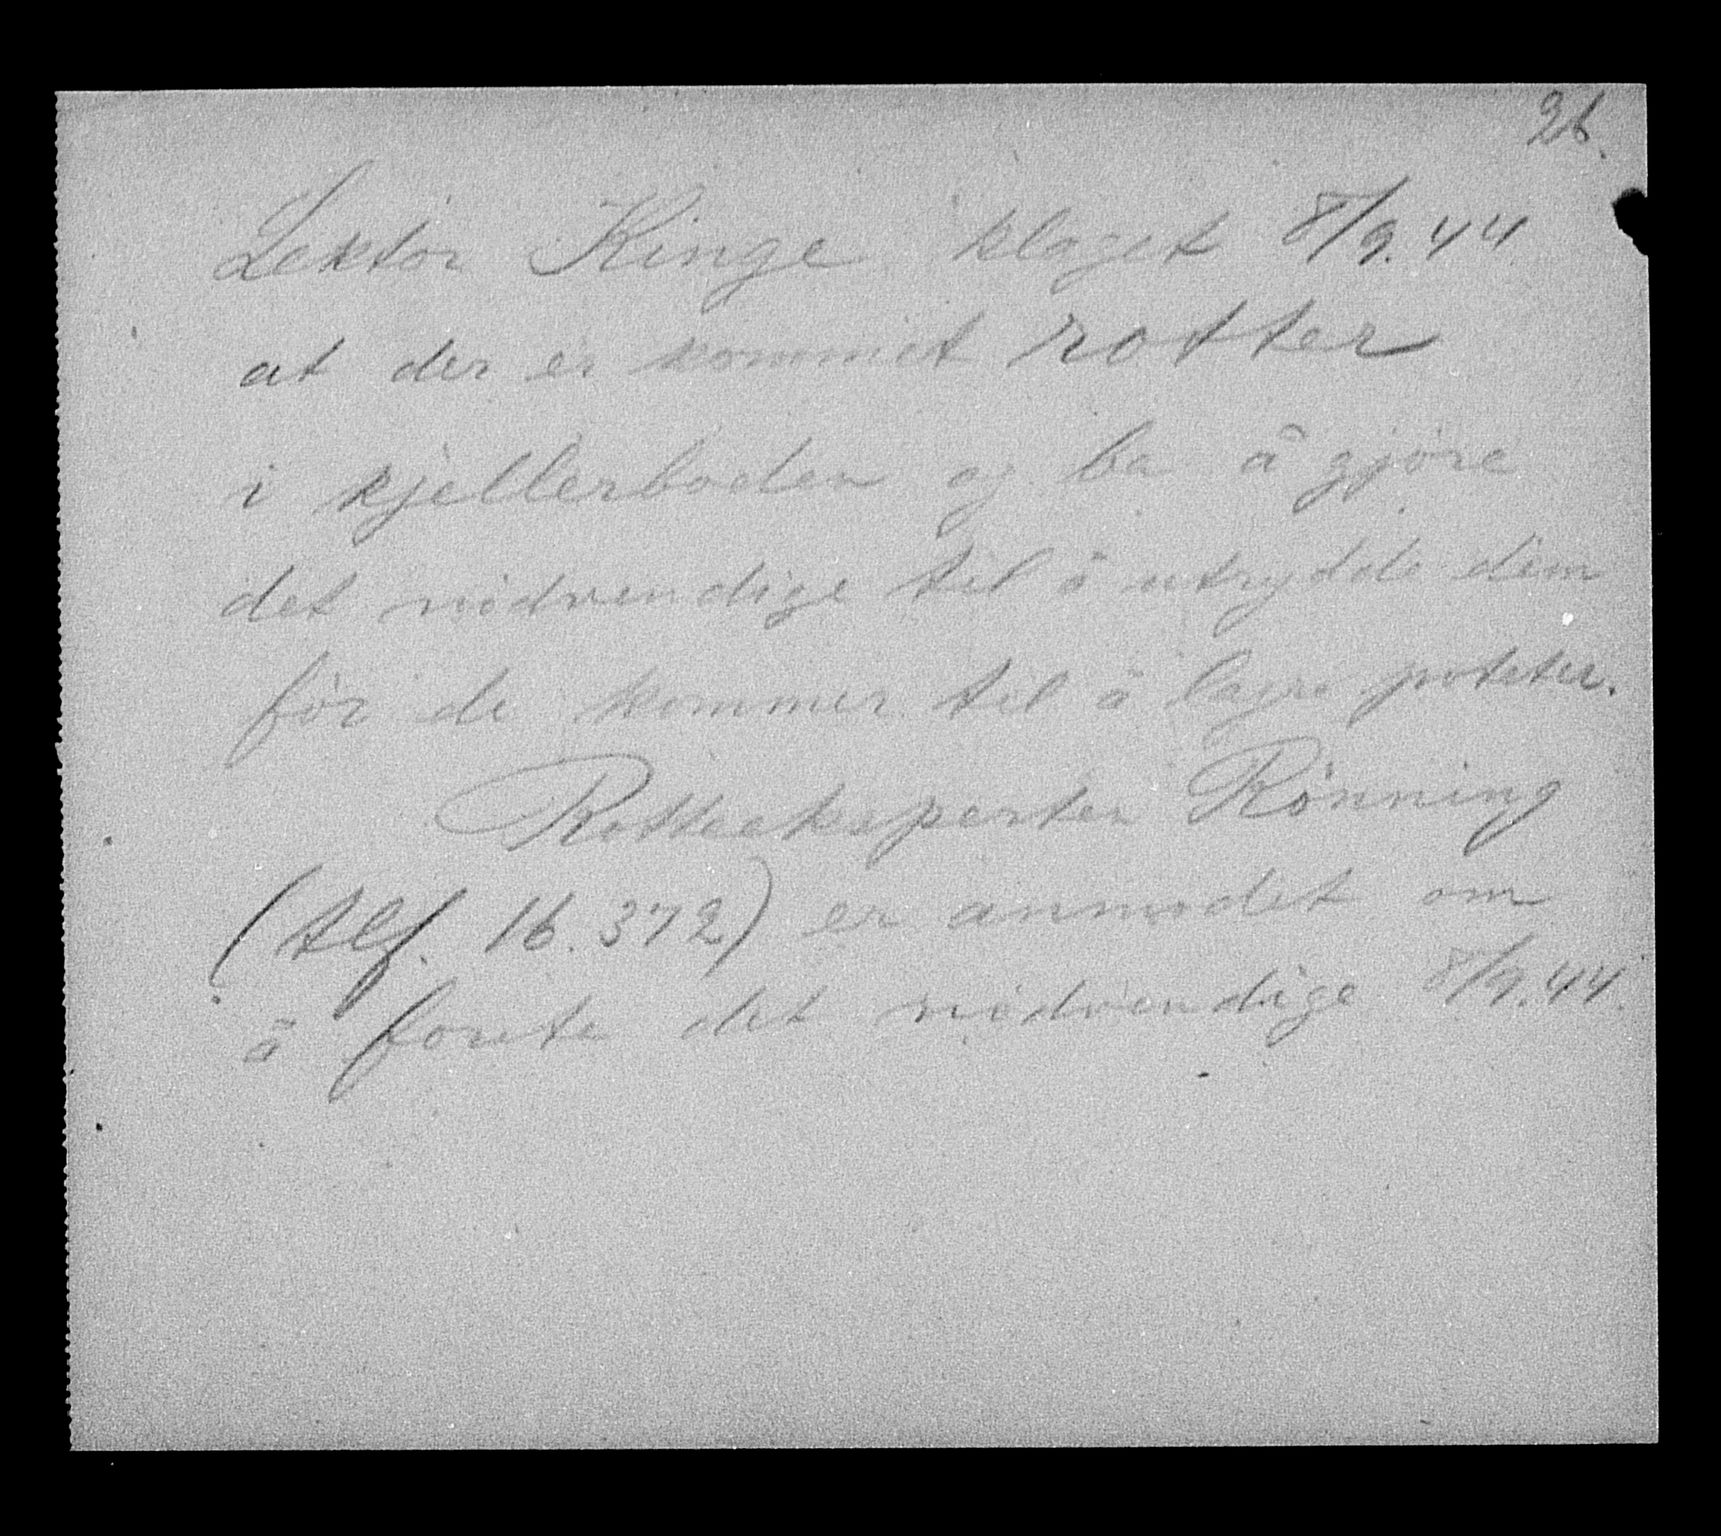 26.
Lektor Kinge klaget 8/9.44
at der er kommet rotter
i kjellerboden og ba å gjöre
det nödvendige til å utrydde dem
för de kommer til å lagre poteter.
Rotteeksperten Rönning
(tlf. 16.372) er anmodet om
å foreta det nödvendige 8/9.44.